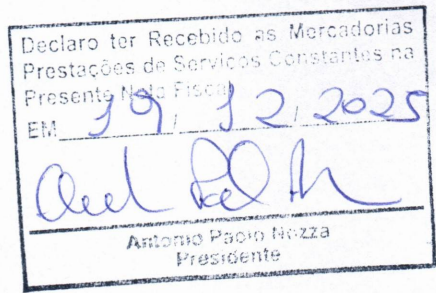 Declaro ter Recebido as Mercadorias
Prestações de Serviços Constantes na
Presente Nota Fiscal
EM 19, 12, 2025
Antonio Paolo Nozza
Presidente